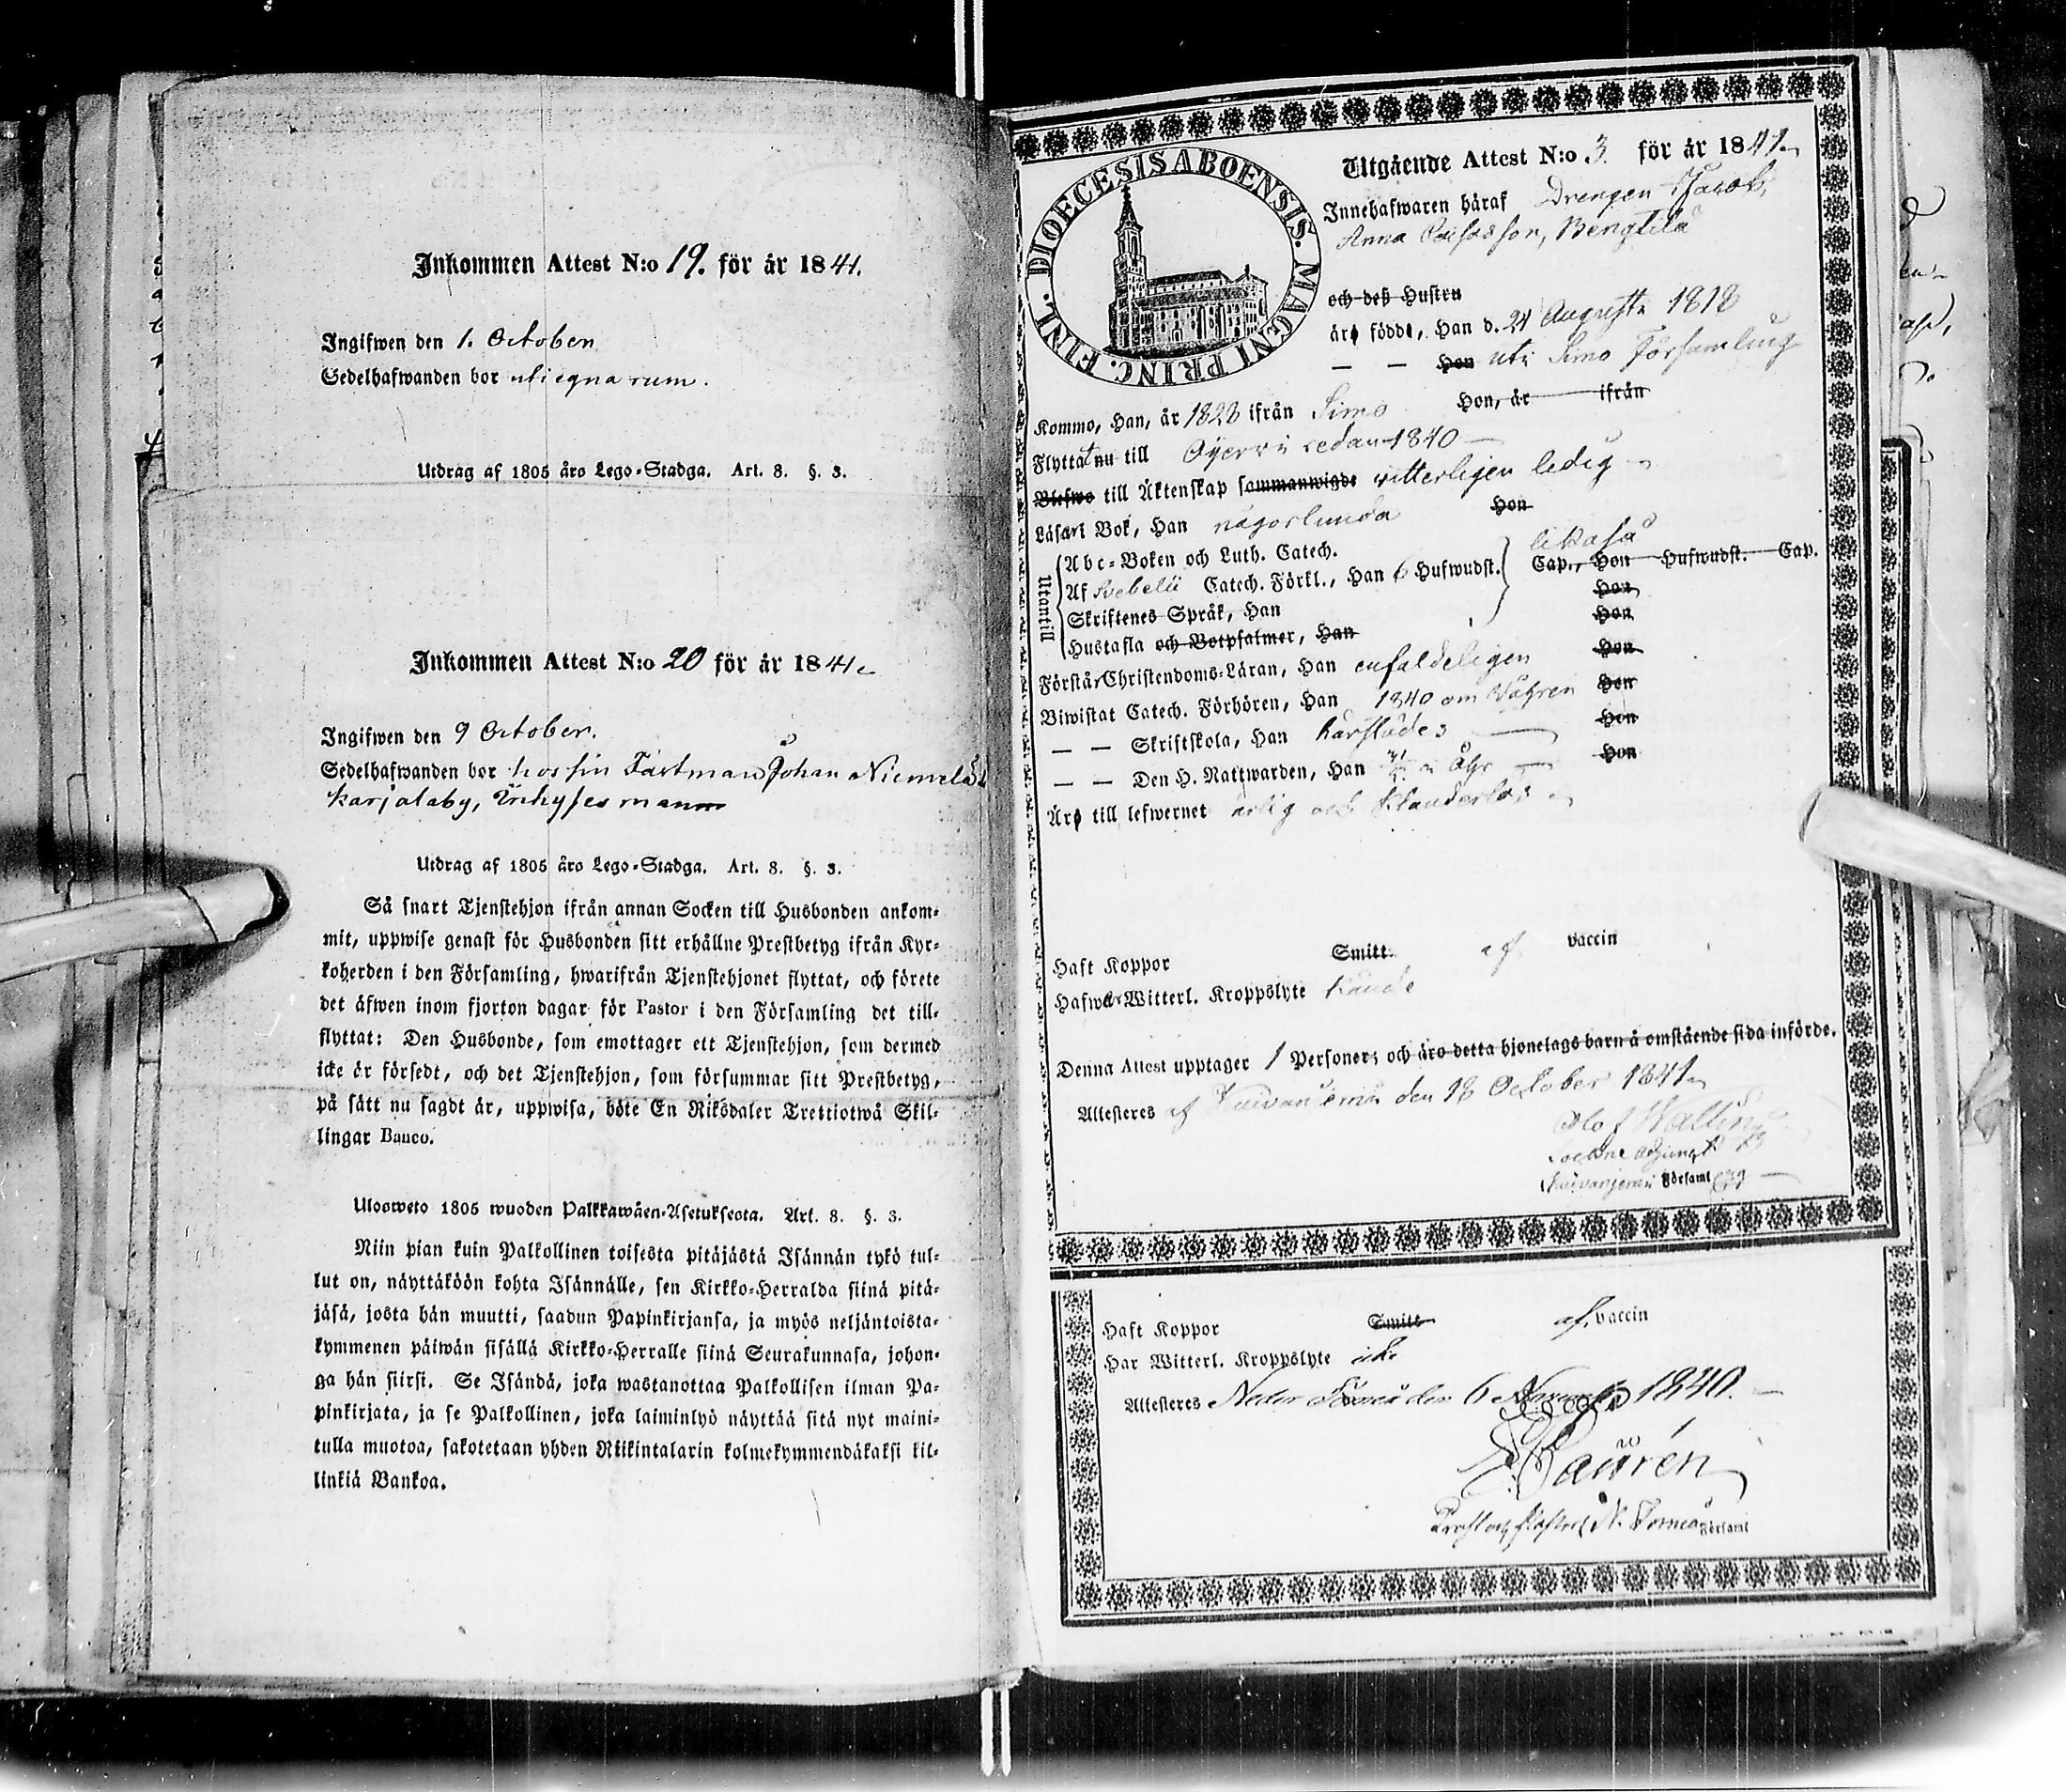 Inkommen Attest N:o 19. för år 1841.
Ingifwen den 1. October
Sedelhafwanden bor uti egna rum.
Utdrag af 1805 års Lego-Stadga. Art. 8. §. 3.
Inkommen Attest N:o 20 för år 1841
Ingifwen den 9 October.
Sedelhafwanden bor hos sin Fästman Johan Niemelä
Karjalaby, Inhysesmann
Utdrag af 1805 års Lego-Stadga. Art. 8. §. 3.
Så snart Tjenstehjon ifrån annan Socken till Husbonden ankom-
mit, uppwise genast för Husbonden sitt erhållne Prestbetyg ifrån Kyr-
koherden i den Församling, hwarifrån Tjenstehjonet flyttat, och förete
det äfwen inom fjorton dagar för Pastor i den Församling det till-
flyttat: Den Husbonde, som emottager ett Tjenstehjon, som dermed
icke är försedt, och det Tjenstehjon, som försummar sitt Prestbetyg,
på sätt nu sagdt är, uppwisa, böte En Riksdaler Trettiotwå Skil-
lingar Banco.
Ulosweto 1805 wuoden Palkkawäen-Asetuksesta. Art. 8. §. 3.
Niin pian kuin Palkollinen toisesta pitäjästä Isännän tykö tul-
lut on, näyttäköön kohta Isännälle, sen Kirkko-Herralda siinä pitä-
jäsä, josta hän muutti, saadun Papinkirjansa, ja myös neljäntoista-
kymmenen päiwän sisällä Kirkko-Herralle siinä Seurakunnasa, johon-
ga hän siirsi. Se Isändä, joka wastanottaa Palkollisen ilman Pa-
pinkirjata, ja se Palkollinen, joka laiminlyö näyttää sitä nyt maini-
tulla muotoa, sakotetaan yhden Riikintalarin kolmekymmendäkaksi kil-
linkiä Bankoa.
DIOECESIS ABOENSIS. MAGNI PRINC. FINL.
Utgående Attest N:o 3. för år 1841
Innehafwaren häraf Drengen Jacob
Anna Bengtilä
och deß Hustru
äro födde, Han d. 24 Augusti 1818
— — Hon uti Simo Församling
Kommo, Han, år 1828 ifrån Simo Hon, år ifrån
Flyttat nu till sedan 1840
Blefwo till Äktenskap sammanwigde witterligen ledig
Läsa i Bok, Han någorlunda Hon
Utantill
Abc-Boken och Luth. Catech. likaså
Af Svebelii Catech. Förkl., Han 6 Hufwudst. Cap., Hon Hufwudst. Cap.
Skriftenes Språk, Han Hon
Hustafla och Botpsalmer, Han Hon
Förstår Christendoms-Läran, Han enfaldeligen Hon
Biwistat Catech. Förhören, Han 1840 om Våhren Hon
— — Skriftskola, Han Hon
— — Den H. Nattwarden, Han Hon
Äro till lefwernet ärlig och klanderlös
Haft Koppor Smitt. af vaccin
Hafwer Witterl. Kroppslyte
Denna Attest upptager 1 Personer; och äro detta hjonelags barn å omstående sida införde.
Attesteres af den 18 October 1841
Olof Wallin
Församl
Haft Koppor Smitt af vaccin
Har Witterl. Kroppslyte icke
Attesteres Neder Torneå den 6 1840.
N. Torneå Församl